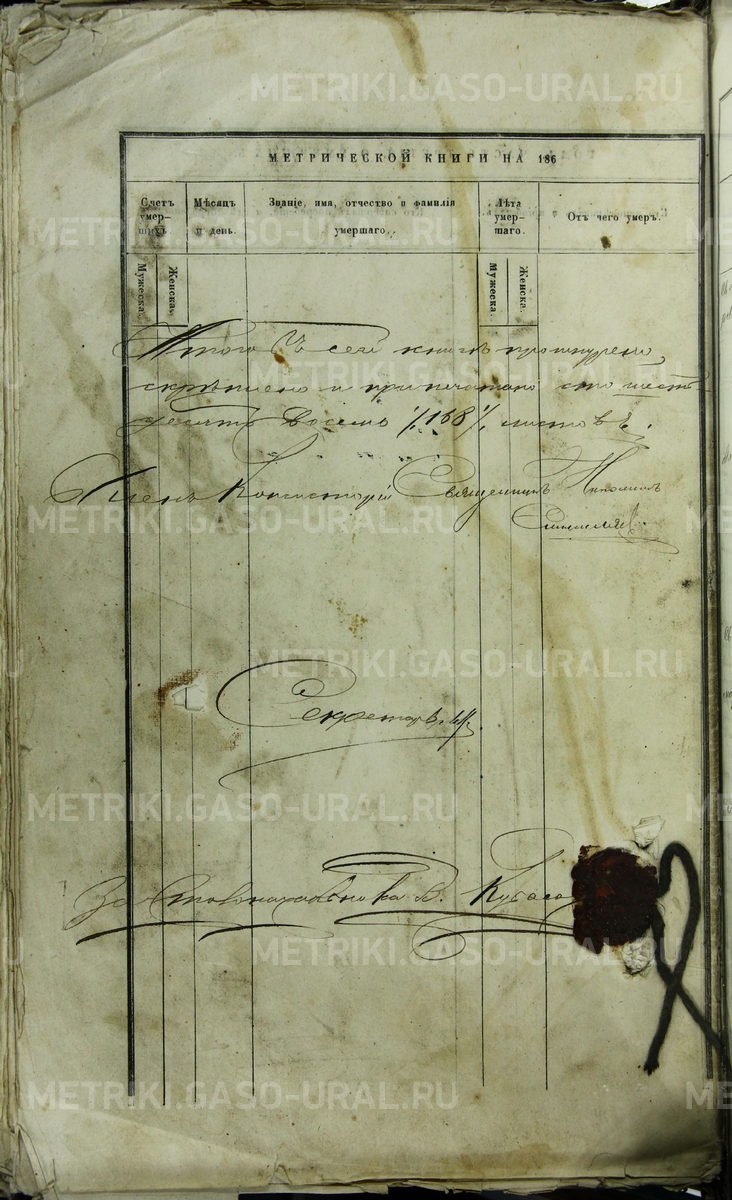 METRIKI.GASO-URAL.RU
МЕТРИЧЕСКОЙ КНИГИ НА 186
Счетъ умер-шихъ.
Мѣсяцъ и день.
Званіе, имя, отчество и фамилія умершаго.
Лѣта умер-шаго.
Отъ чего умеръ.
Мужеска.
Женска.
Мужеска.
Женска.
Итого въ сей книгѣ прошнурено,
скрѣплено и припечатано сто шесть
десятъ восемь 168 листовъ.
Членъ Консисторіи Священникъ
Секретарь
За Столоначальника В.
METRIKI.GASO-URAL.RU
METRIKI.GASO-URAL.RU
METRIKI.GASO-URAL.RU
METRIKI.GASO-URAL.RU
METRIKI.GASO-URAL.RU
METRIKI.GASO-URAL.RU
METRIKI.GASO-URAL.RU